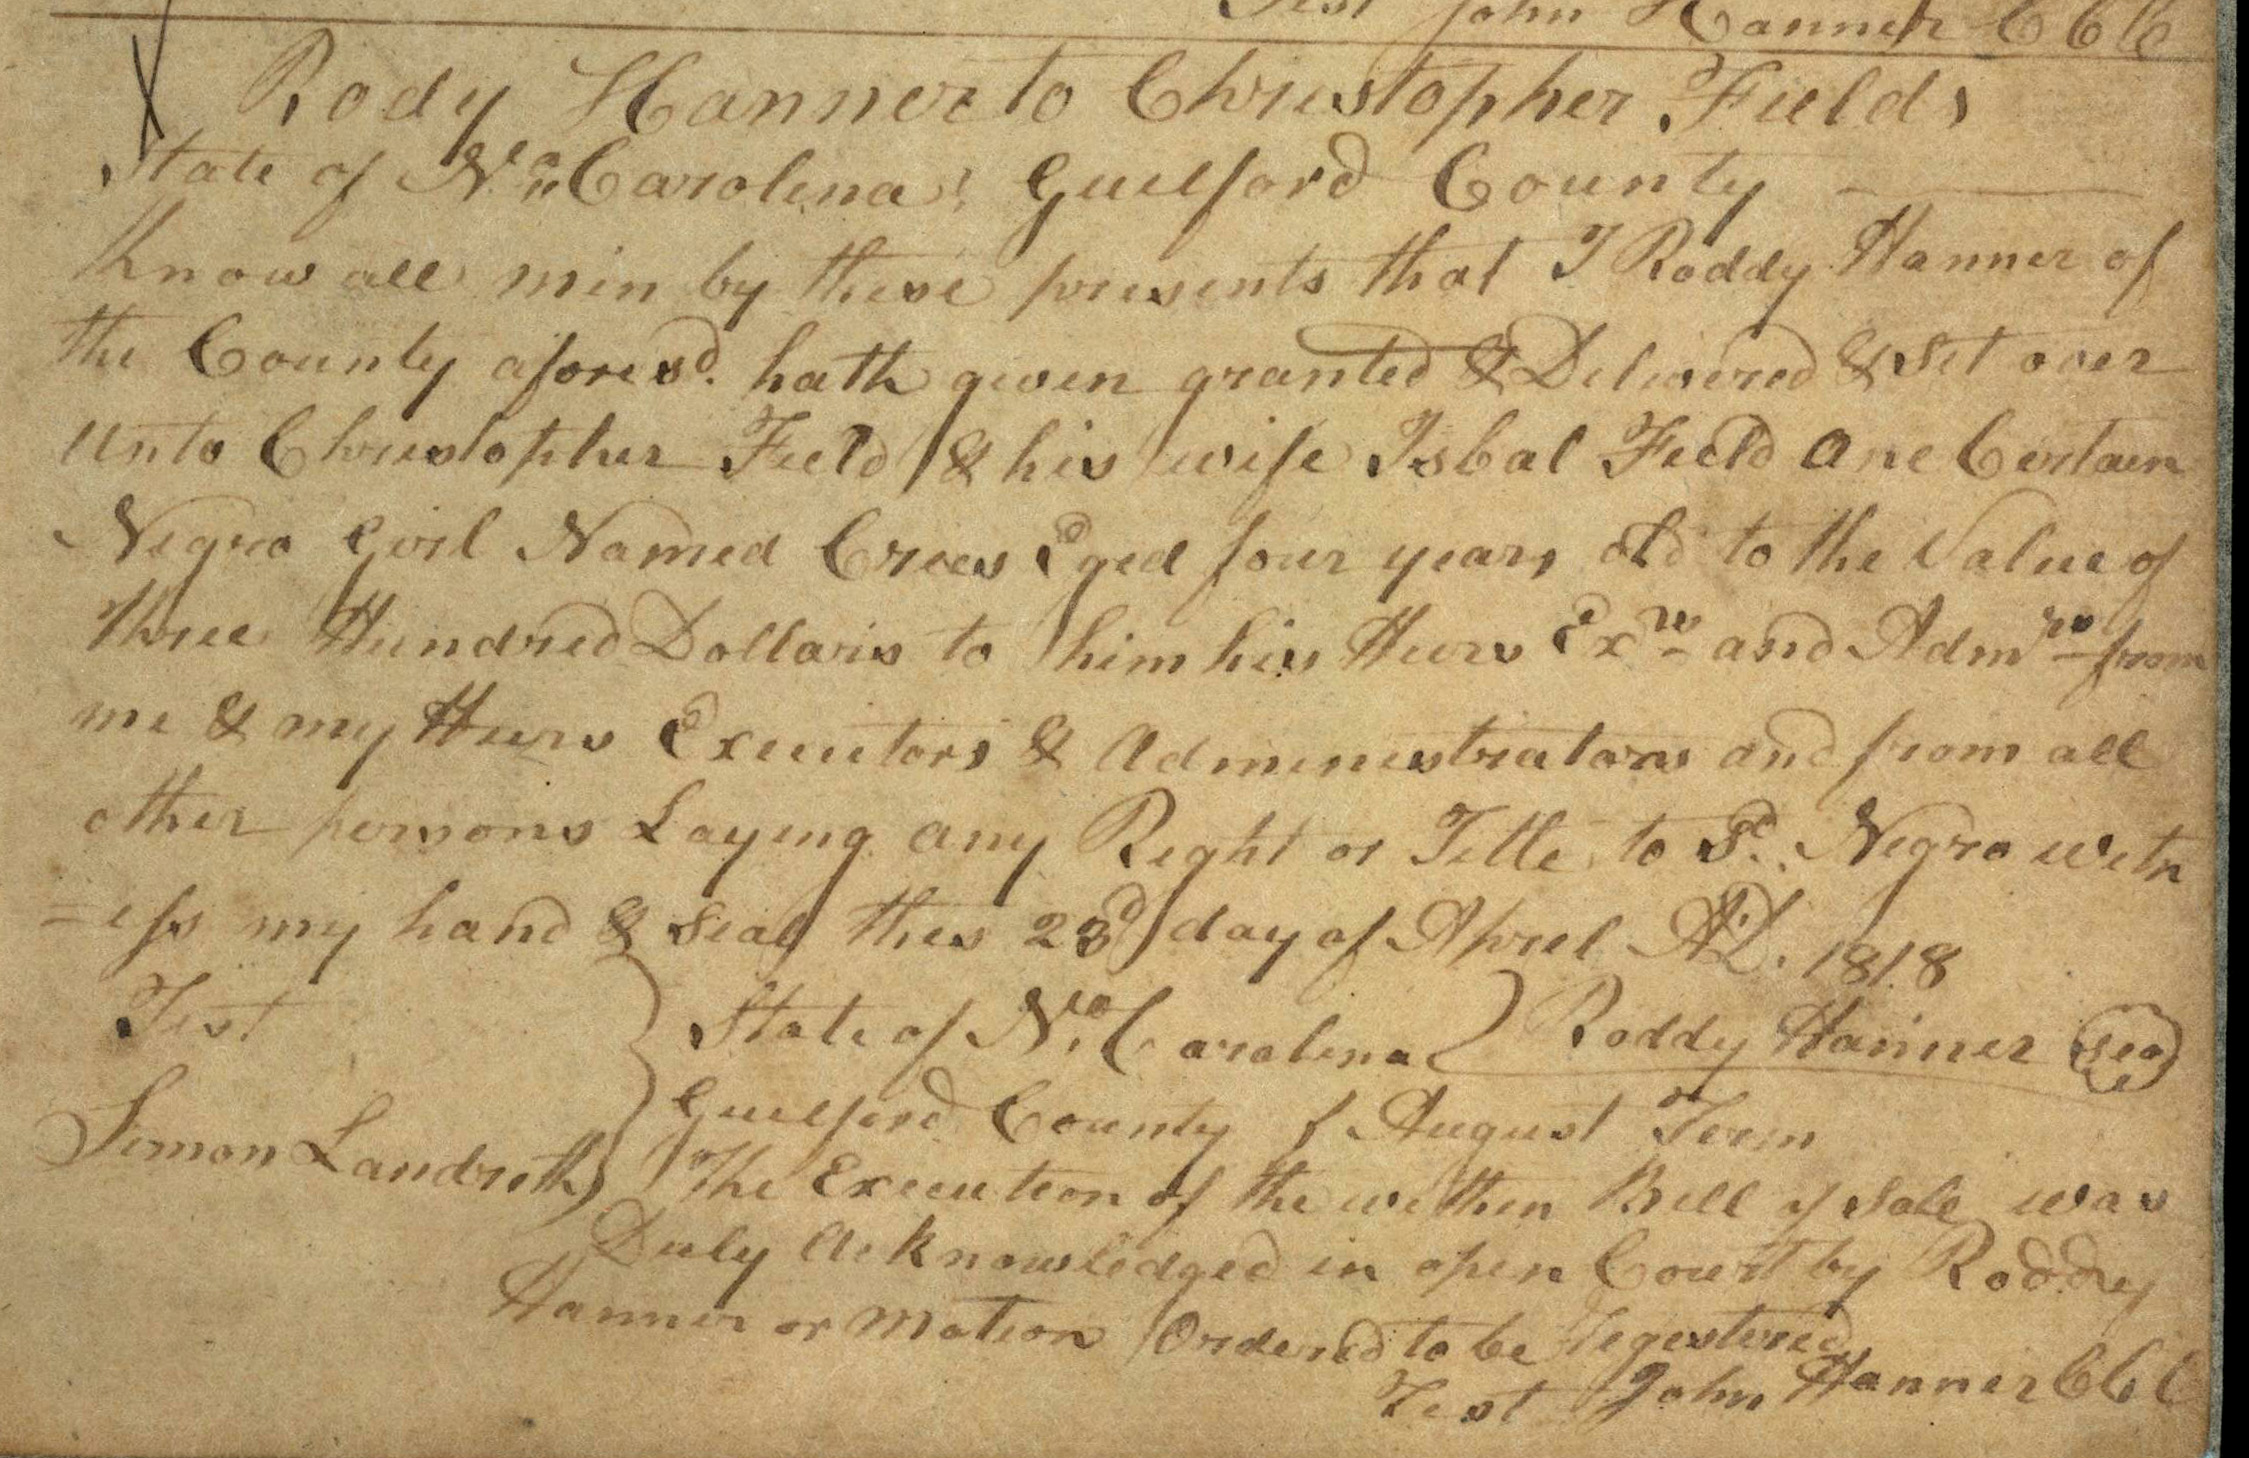 Test John Hanner CCC
Rody Hanner to Christopher Fields
State of No. Carolina Guilford County
Know all min by these presents that I Roddy Hanner of
the County aforesd. hath given granted & Delivered & Set over
unto Christopher Field & his wife Isbal Field One Certain
Negro Girl Named Crees Eged four years old to the Value of
three Hundred Dollars to him his Heirs Exrs and Admrs from
me & my Heirs Executors & Administrators and from all
other persons Laying any Right or Title to Sd. Negro witn
=ess my hand & seal this 23d day of April AD. 1818
Test
Simon Landreth
Roddy Hanner Seal
State of No. Carolina
Guilford County August Term
The Execution of the within Bill of Sale was
Duly Acknowledged in open Court by Roddy
Hanner or motion Ordered to be Registered
Test John Hanner CCC